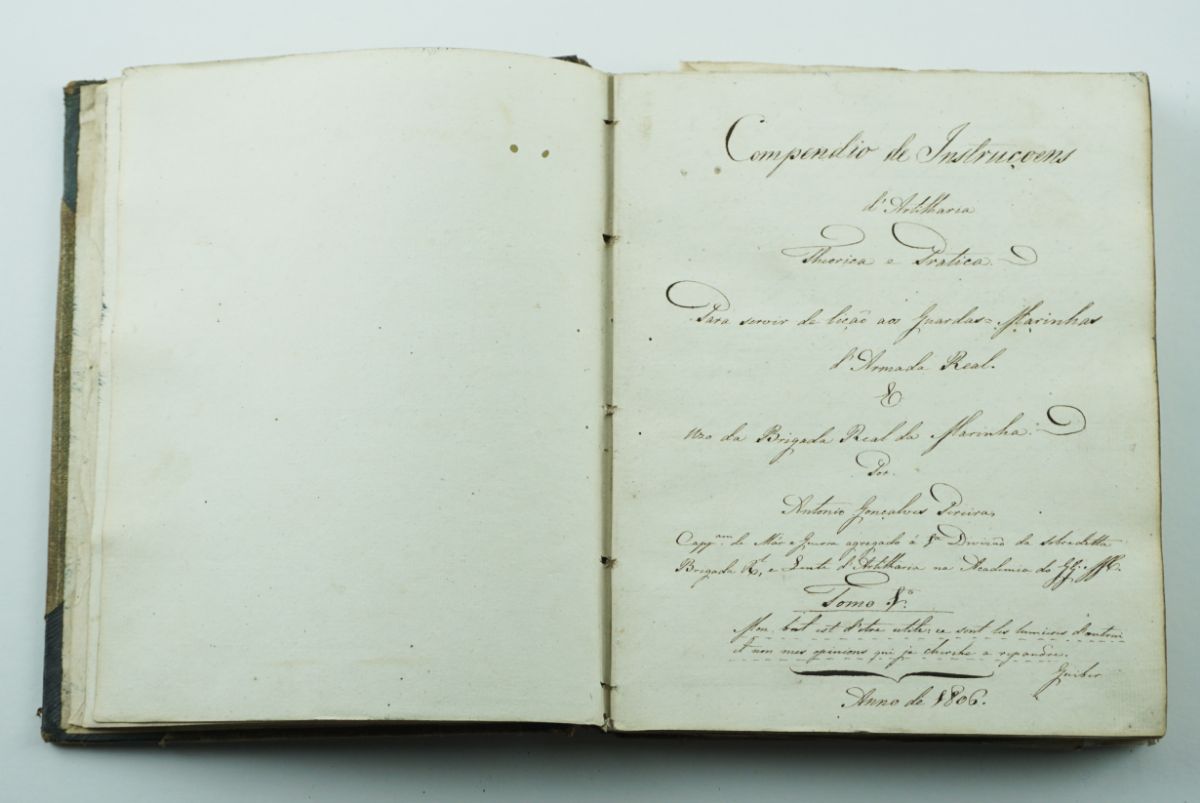 Compendio de Instruçoens
d'Artilharia
Theorica e Pratica.
Para servir de lição aos Guardas=Marinhas
d'Armada Real.
E
Uzo da Brigada Real da Marinha.
Por
Antonio Gonçalves Pereira,
Cappam. de Mar e Guerra agregado á 1ª Divizaõ da sobreditta
Brigada Rl, e Lente d'Artilharia na Academia do GG. MM.
Tomo 1º.
Mon but est d'etre utile; ce sont les lumieres d'autrui
et non mes opinions qui je cherche a repandre.
Guiber
Anno de 1806.